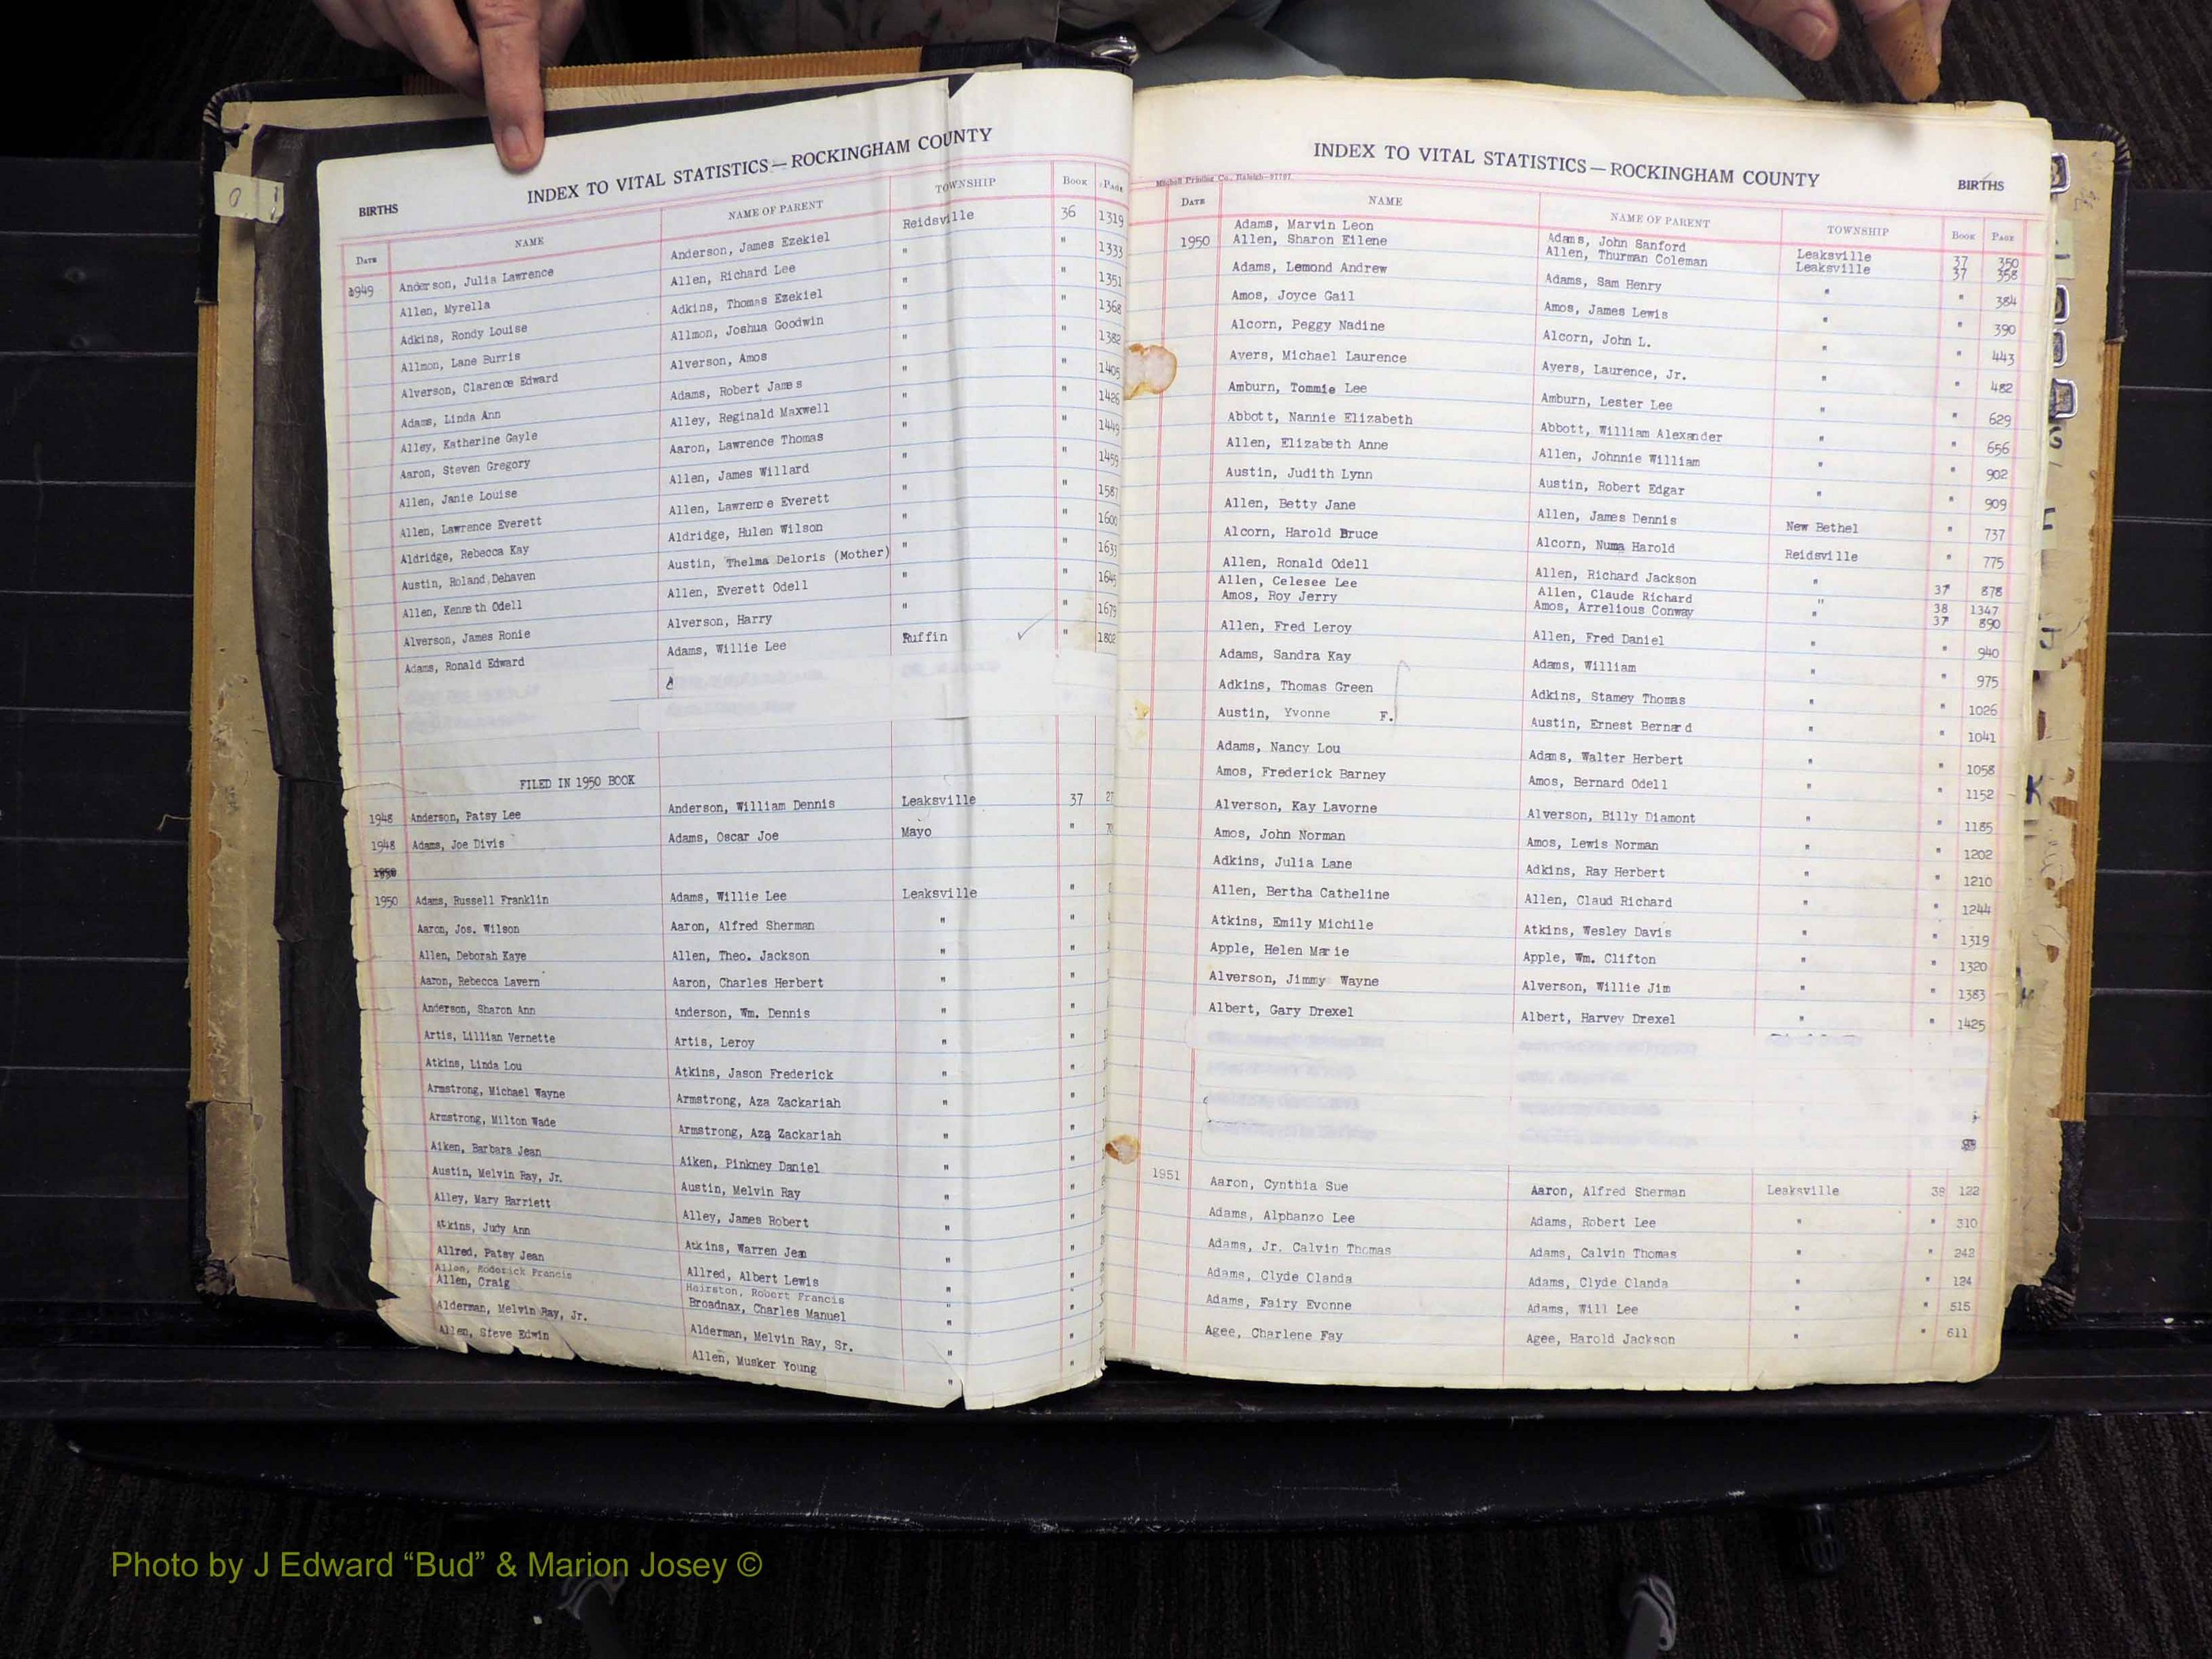 INDEX TO VITAL STATISTICS — ROCKINGHAM COUNTY
BIRTHS
DATE NAME NAME OF PARENT TOWNSHIP BOOK PAGE
1949 Anderson, Julia Lawrence Anderson, James Ezekiel Reidsville 36 1319
Allen, Myrella Allen, Richard Lee " " 1333
Adkins, Rondy Louise Adkins, Thomas Ezekiel " " 1351
Allmon, Lane Burris Allmon, Joshua Goodwin " " 1368
Alverson, Clarence Edward Alverson, Amos " " 1382
Adams, Linda Ann Adams, Robert James " " 1405
Alley, Katherine Gayle Alley, Reginald Maxwell " " 1426
Aaron, Steven Gregory Aaron, Lawrence Thomas " " 1449
Allen, Janie Louise Allen, James Willard " " 1459
Allen, Lawrence Everett Allen, Lawrence Everett " " 1587
Aldridge, Rebecca Kay Aldridge, Hulen Wilson " " 1600
Austin, Roland Dehaven Austin, Thelma Deloris (Mother) " " 1633
Allen, Kenneth Odell Allen, Everett Odell " " 1645
Alverson, James Ronie Alverson, Harry " " 1679
Adams, Ronald Edward Adams, Willie Lee Ruffin " 1802
FILED IN 1950 BOOK
1948 Anderson, Patsy Lee Anderson, William Dennis Leaksville 37
1948 Adams, Joe Divis Adams, Oscar Joe Mayo "
1950 Adams, Russell Franklin Adams, Willie Lee Leaksville "
Aaron, Jos. Wilson Aaron, Alfred Sherman " "
Allen, Deborah Kaye Allen, Theo. Jackson " "
Aaron, Rebecca Lavern Aaron, Charles Herbert " "
Anderson, Sharon Ann Anderson, Wm. Dennis " "
Artis, Lillian Vernette Artis, Leroy " "
Atkins, Linda Lou Atkins, Jason Frederick " "
Armstrong, Michael Wayne Armstrong, Aza Zackariah " "
Armstrong, Milton Wade Armstrong, Aza Zackariah " "
Aiken, Barbara Jean Aiken, Pinkney Daniel " "
Austin, Melvin Ray, Jr. Austin, Melvin Ray " "
Alley, Mary Harriett Alley, James Robert " "
Atkins, Judy Ann Atkins, Warren Jean " "
Allred, Patsy Jean Allred, Albert Lewis " "
Allen, Roderick Francis Hairston, Robert Francis " "
Allen, Craig Broadnax, Charles Manuel " "
Alderman, Melvin Ray, Jr. Alderman, Melvin Ray, Sr. " "
Allen, Steve Edwin Allen, Musker Young " "
INDEX TO VITAL STATISTICS — ROCKINGHAM COUNTY
BIRTHS
Mitchell Printing Co., Raleigh—97707
DATE NAME NAME OF PARENT TOWNSHIP BOOK PAGE
Adams, Marvin Leon Adams, John Sanford Leaksville 37 350
1950 Allen, Sharon Eilene Allen, Thurman Coleman Leaksville 37 358
Adams, Lemond Andrew Adams, Sam Henry " " 384
Amos, Joyce Gail Amos, James Lewis " " 390
Alcorn, Peggy Nadine Alcorn, John L. " " 443
Ayers, Michael Laurence Ayers, Laurence, Jr. " " 482
Amburn, Tommie Lee Amburn, Lester Lee " " 629
Abbott, Nannie Elizabeth Abbott, William Alexander " " 656
Allen, Elizabeth Anne Allen, Johnnie William " " 902
Austin, Judith Lynn Austin, Robert Edgar " " 909
Allen, Betty Jane Allen, James Dennis New Bethel " 737
Alcorn, Harold Bruce Alcorn, Numa Harold Reidsville " 775
Allen, Ronald Odell Allen, Richard Jackson " 37 878
Allen, Celesee Lee Allen, Claude Richard " 38 1347
Amos, Roy Jerry Amos, Arrelious Conway " 37 890
Allen, Fred Leroy Allen, Fred Daniel " " 940
Adams, Sandra Kay Adams, William " " 975
Adkins, Thomas Green Adkins, Stamey Thomas " " 1026
Austin, Yvonne F. Austin, Ernest Bernard " " 1041
Adams, Nancy Lou Adams, Walter Herbert " " 1058
Amos, Frederick Barney Amos, Bernard Odell " " 1152
Alverson, Kay Lavorne Alverson, Billy Diamont " " 1185
Amos, John Norman Amos, Lewis Norman " " 1202
Adkins, Julia Lane Adkins, Ray Herbert " " 1210
Allen, Bertha Catheline Allen, Claud Richard " " 1244
Atkins, Emily Michile Atkins, Wesley Davis " " 1319
Apple, Helen Marie Apple, Wm. Clifton " " 1320
Alverson, Jimmy Wayne Alverson, Willie Jim " " 1383
Albert, Gary Drexel Albert, Harvey Drexel " " 1425
1951 Aaron, Cynthia Sue Aaron, Alfred Sherman Leaksville 38 122
Adams, Alphanzo Lee Adams, Robert Lee " " 310
Adams, Jr. Calvin Thomas Adams, Calvin Thomas " " 242
Adams, Clyde Olanda Adams, Clyde Olanda " " 124
Adams, Fairy Evonne Adams, Will Lee " " 515
Agee, Charlene Fay Agee, Harold Jackson " " 611
Photo by J Edward “Bud” & Marion Josey ©